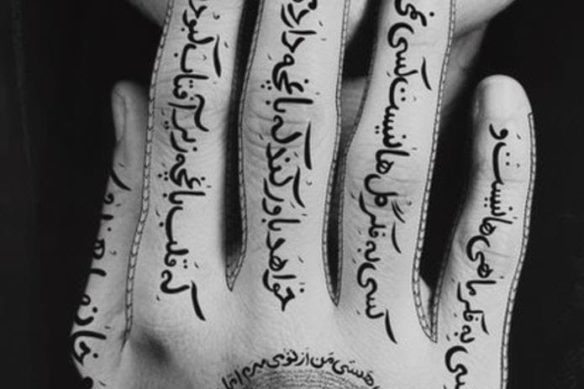 به فکر ماهی ها نیست و
کسی به فکر گل ها نیست کسی
خواهد باور کند که باغچه دارد
که قلب باغچه زیر آفتاب کبود
و خانه
هستی من از